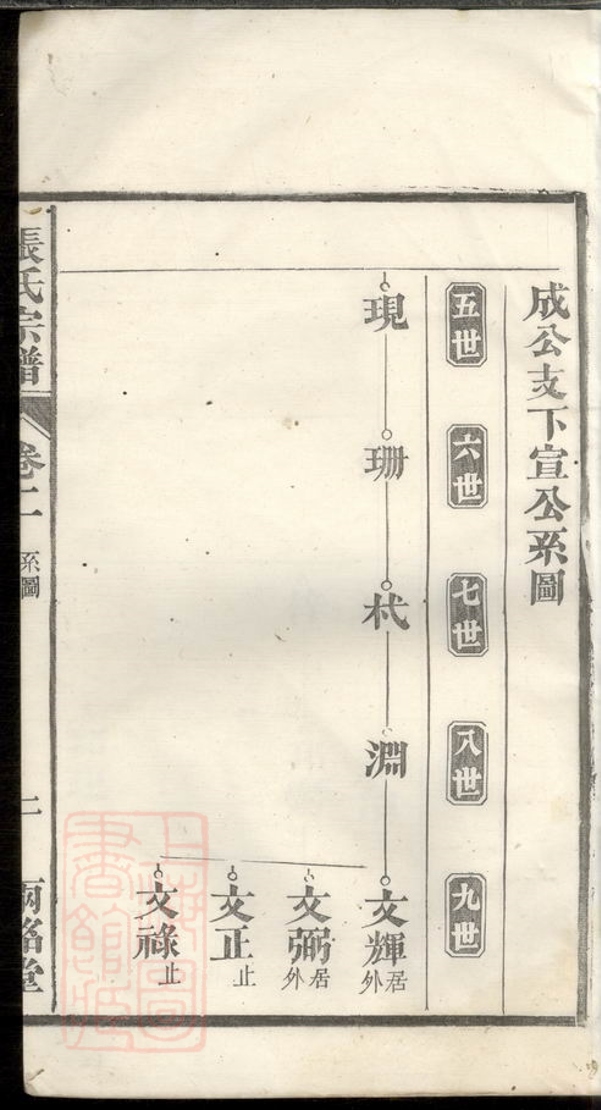 成公支下宣公系圖
五世
六世
七世
八世
九世
現
珊
杙
淵
文輝居外
文弼居外
文正止
文祿止
張氏宗譜
卷二
系圖
二
兩銘堂
上海圖書館藏